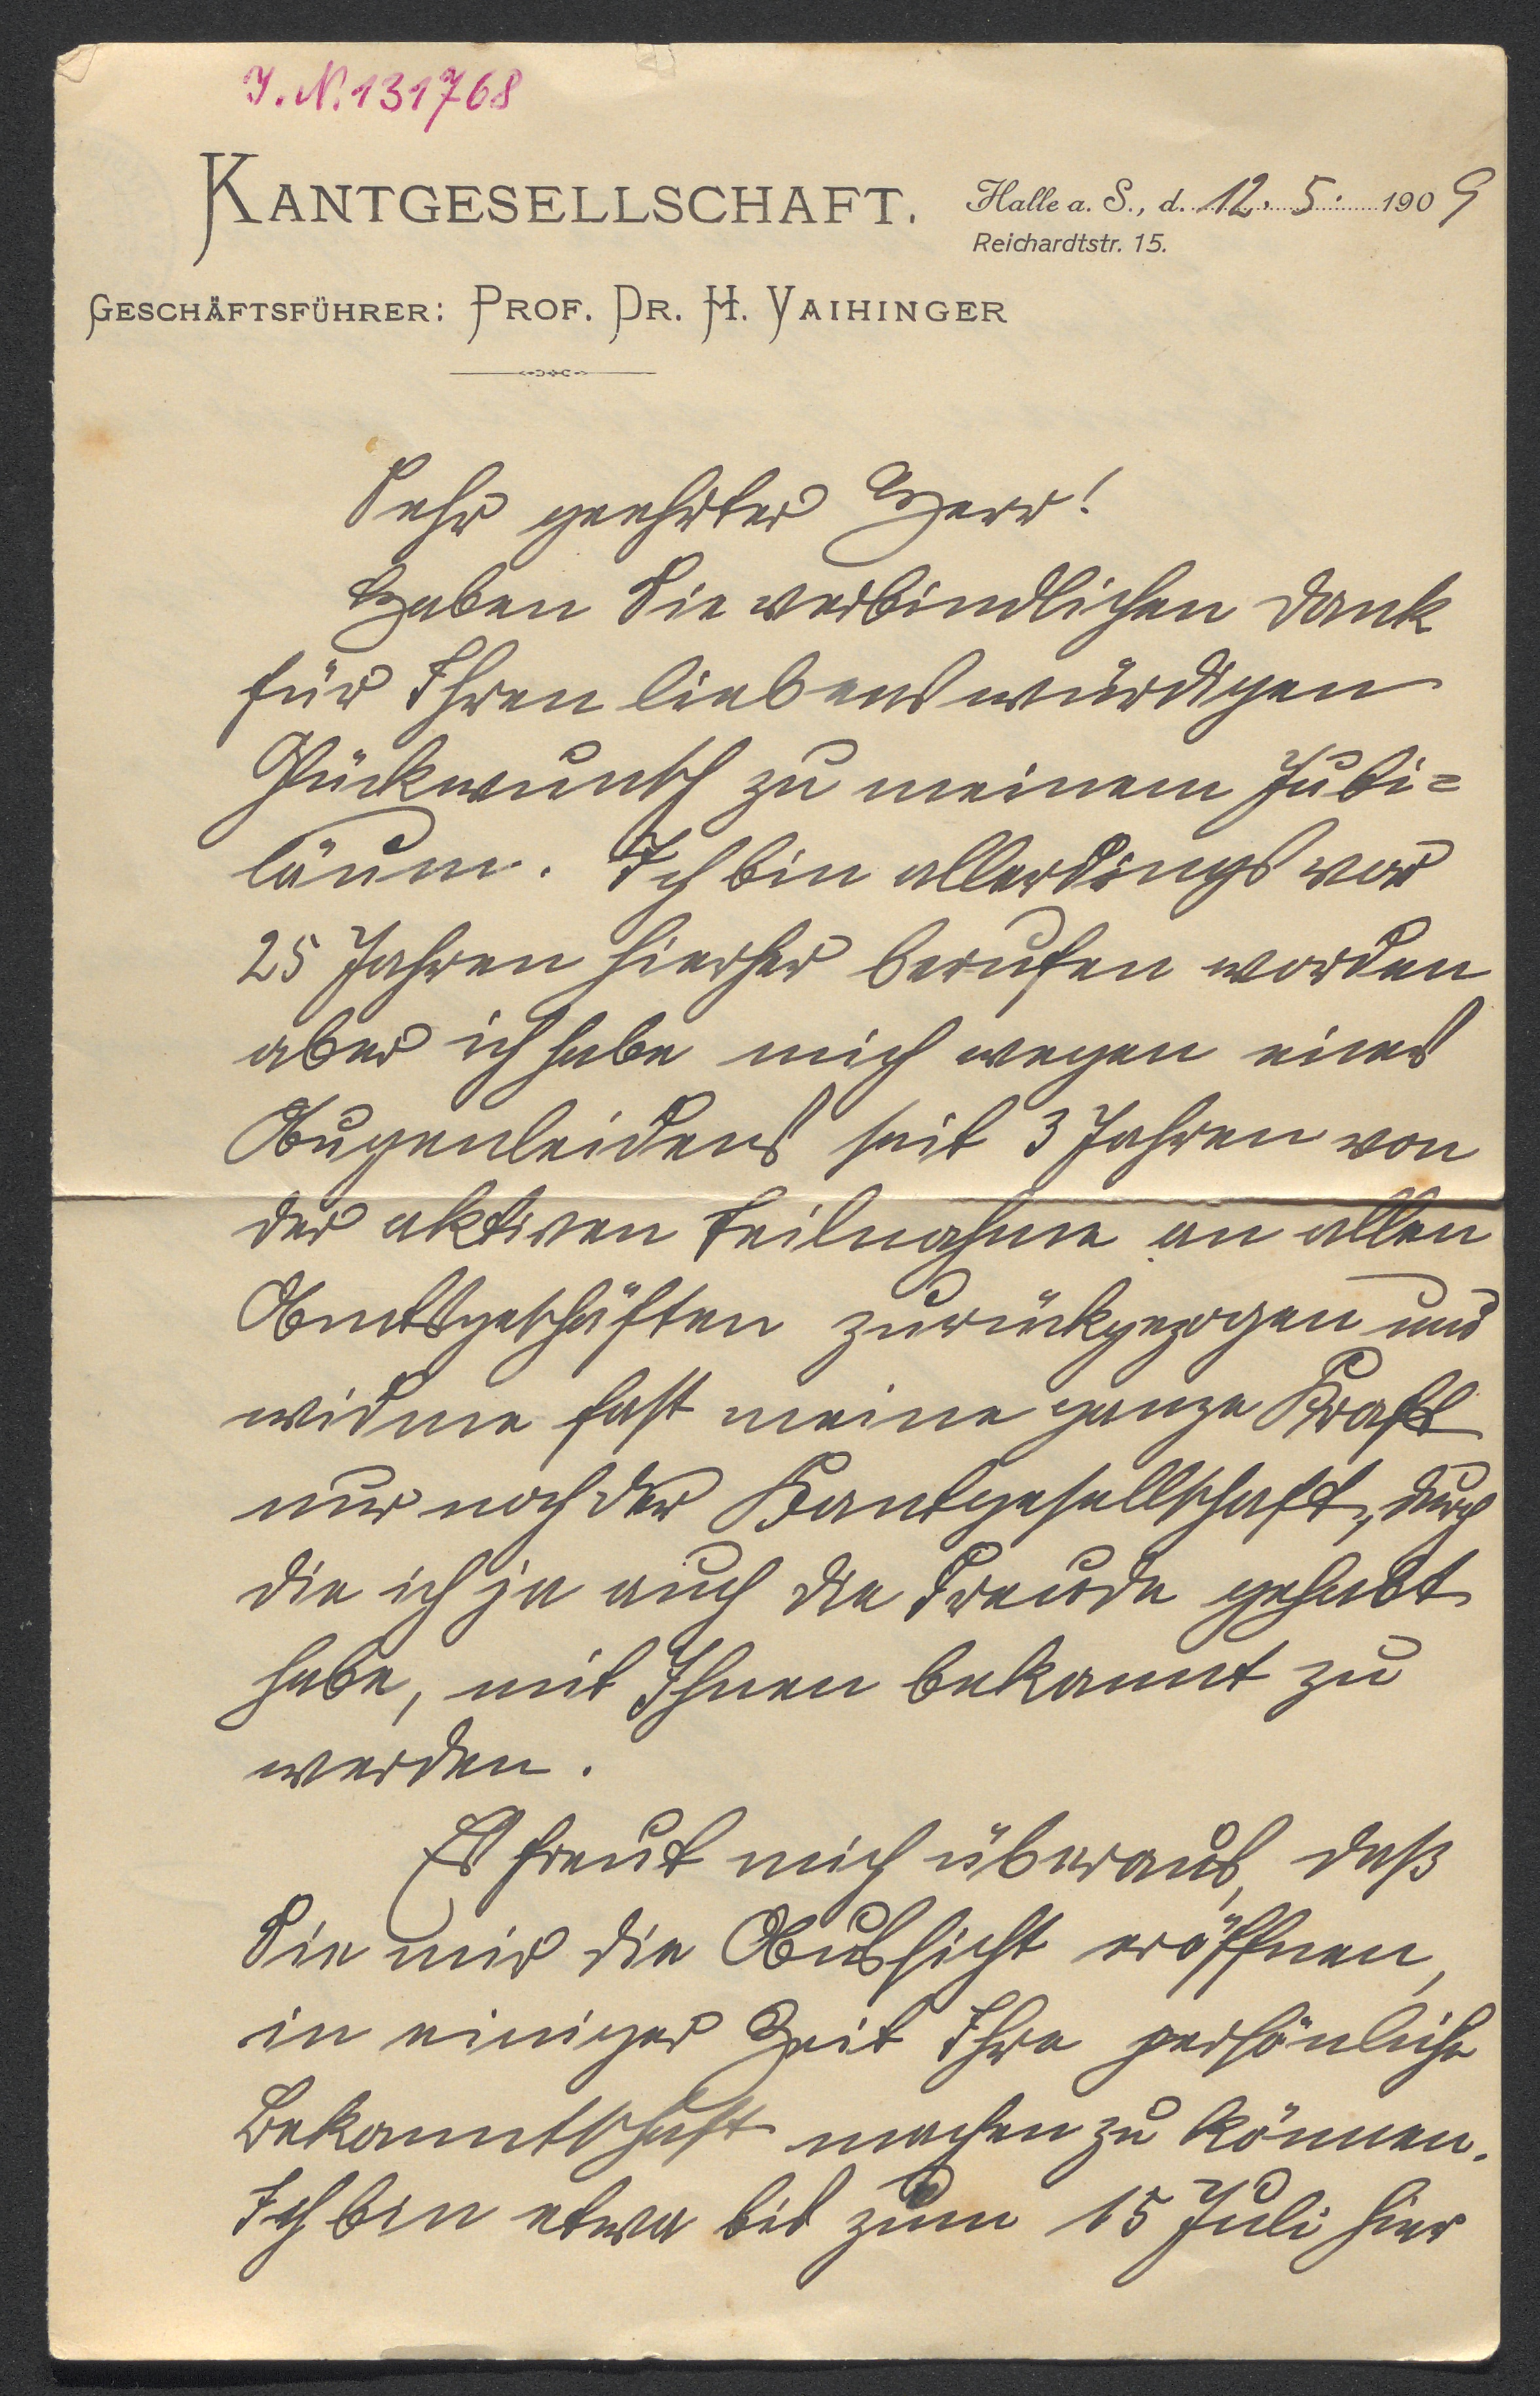 I.N. 131768
KANTGESELLSCHAFT.
Halle a. S., d. 12. 5. 1909
Reichardtstr. 15.
GESCHÄFTSFÜHRER: PROF. DR. H. VAIHINGER
Sehr geehrter Herr!
Haben Sie verbindlichen Dank
für Ihren liebenswürdigen
Glückwunsch zu meinem Jubi=
läum. Ich bin allerdings vor
25 Jahren hierher berufen worden
aber ich habe mich wegen eines
Augenleidens seit 3 Jahren von
der aktiven Teilnahme an allen
Amtsgeschäften zurückgezogen und
widme fast meine ganze Kraft
nur noch der Kantgesellschaft, durch
die ich ja auch die Freude gehabt
habe, mit Ihnen bekannt zu
werden.
Es freut mich überaus, daß
Sie mir die Aussicht eröffnen,
in einiger Zeit Ihre persönliche
Bekanntschaft machen zu können.
Ich bin etwa bis zum 15 Juli hier